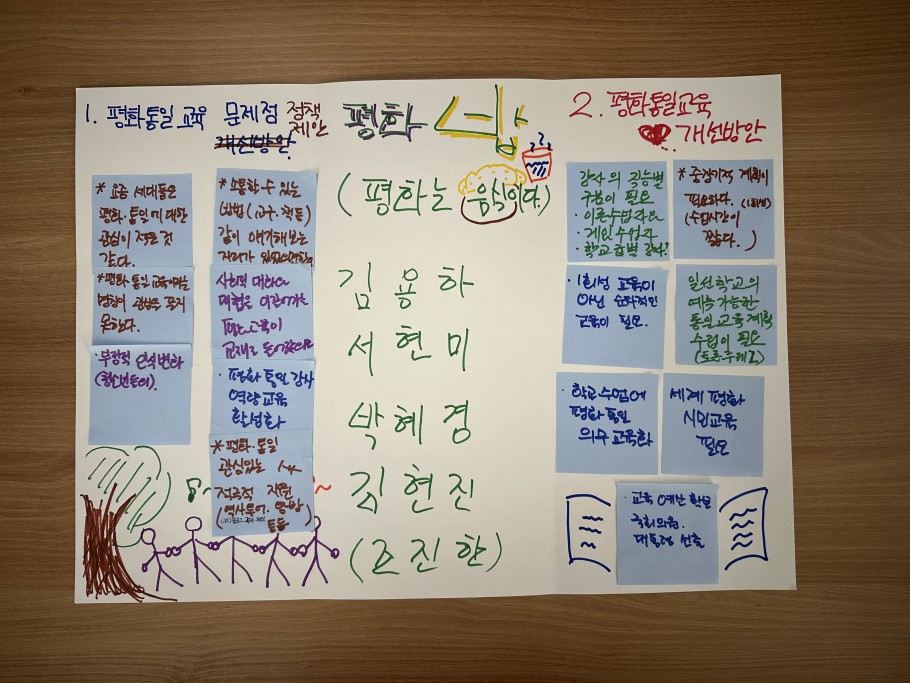 1. 평화통일 교육 문제점 정책
제안
개선방안
* 요즘 세대들은
평화·통일에 대한
관심이 적은 것
같다.
* 평화 통일 교육이라는
관심은 갖지
못했다.
· 부정적 인식 변화
(청소년들이)
* 소통할 수 있는
방법 (교구, 책 등)
같이 얘기해보는
자리가
사회적 대화
교육이
교재로
· 평화 통일 강사
역량교육
활성화
* 평화·통일
관심있는
적극적 지원
(역사동아리, 동앙
등등)
평화
(평화는 음식이다.)
김용하
서현미
박혜경
김현진
(조진한)
2. 평화통일교육
개선방안
강사의 직능별
구분이 필요
· 이론수업강사
· 게임수업강사
· 학교급별 강사?
* 중장기적 계획이
필요하다. (1회성)
(수업시간이
짧다.)
· 1회성 교육이
아닌 순차적인
교육이 필요.
일선학교의
예측 가능한
통일교육 계획
수립이 필요
· 학교수업에
평화통일
의무교육화
세계 평화
시민교육
필요
· 교육 예산 확보
국회의원.
대통령 선출